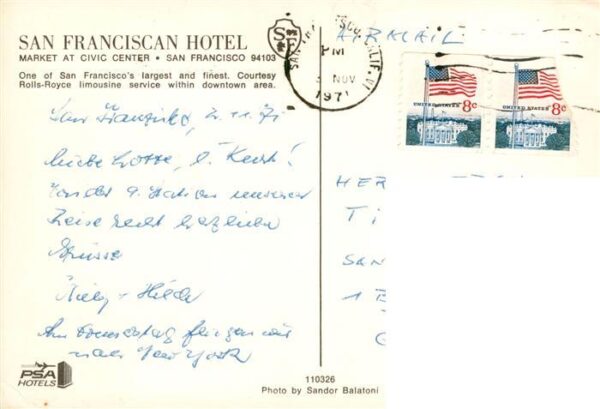 SAN FRANCISCAN HOTEL
MARKET AT CIVIC CENTER • SAN FRANCISCO 94103
One of San Francisco's largest and finest. Courtesy
Rolls-Royce limousine service within downtown area.
San Franzisko, 2. 11. 71
Liebe Lotte, l. Kurt!
Von der 9. Station unserer
Reise recht herzliche
Grüsse
+ Hilde
Am Donnerstag fliegen wir
nach New York
PSA
HOTELS
110326
Photo by Sandor Balatoni
AIRMAIL
SAN FRANCISCO, CALIF.
PM
NOV
1971
UNITED STATES 8c
UNITED STATES 8c
HER
TI
SAN
1